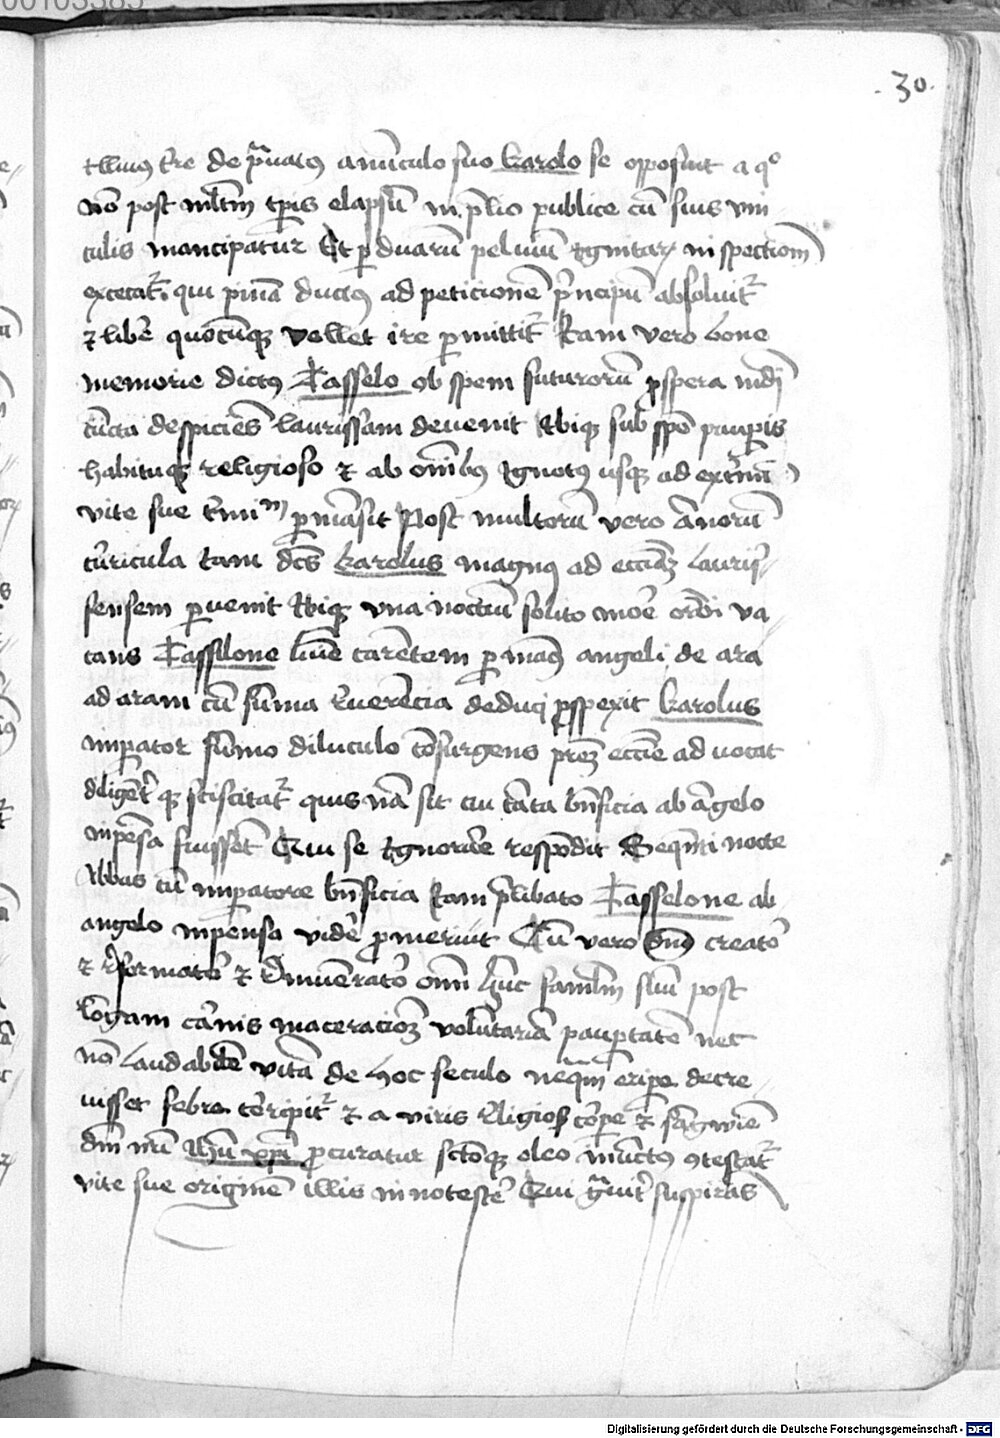 .30.
illius t're de p'uatus auu'culo suo karolo se opposuit a q°
no' post mltm tp'is elapsu' in p'lio publice cu' suis vin
culis mancipatur Et p duaru' peluiu' ignitar' inspectionem
excecat'. qui pina' ductus ad peticione' p'ncipu' absoluit'
et libe' quocu'q; vellet ire p'mittit' Iam vero bone
memorie dictus Tasselo ob spem futuroru' p'spera mdi
cu'cta despicie's laurissam deuenit Ibiq; sub spe' paup'is
habituq; religioso et ab omibus ignotus usq; ad extremu'
vite sue t'mi'm p'ma'sit Post multoru' vero a'noru'
cu'ricula iam dc's karolus magnus ad eccia'm lauris'
sensem p'uenit Ibiq; vna noctiu' solito more orao'i va
cans Tassilone lu'ie care'tem p' man's angeli de ara
ad aram cu' su'ma reuere'cia deduci p'spexit karolus
imperator su'mo diluculo co'surgens prem eccie aduocat
dilige't' q; sciscitat' quisna' sit cui ta'ta bn'ficia ab a'ngelo
inpe'sa fuisse't Qui se ignorare respo'dit Seque'ti nocte
Abbas cu' imperatore bn'ficia iam p'libato Tasselone ab
angelo inpensa vide' p'meruit Cu' vero dn's creato'
et reformato' et remunerato' omi' hu'c famlm suu' post
lo'gam carnis maceracio'm volu'taria' paup'tate' nec
no' laudabile' vita' de hoc seculo neq'm eripe' decre
uisset febre co'ripit' et a viris religios' co'pe et sa'gwie
dni nri ihu xpi p'curatur sctoq; oleo inu'ctus 9testat'
vite sue origine' illis innotesce' Qui g'uit' suspira's
Digitalisierung gefördert durch die Deutsche Forschungsgemeinschaft - DFG